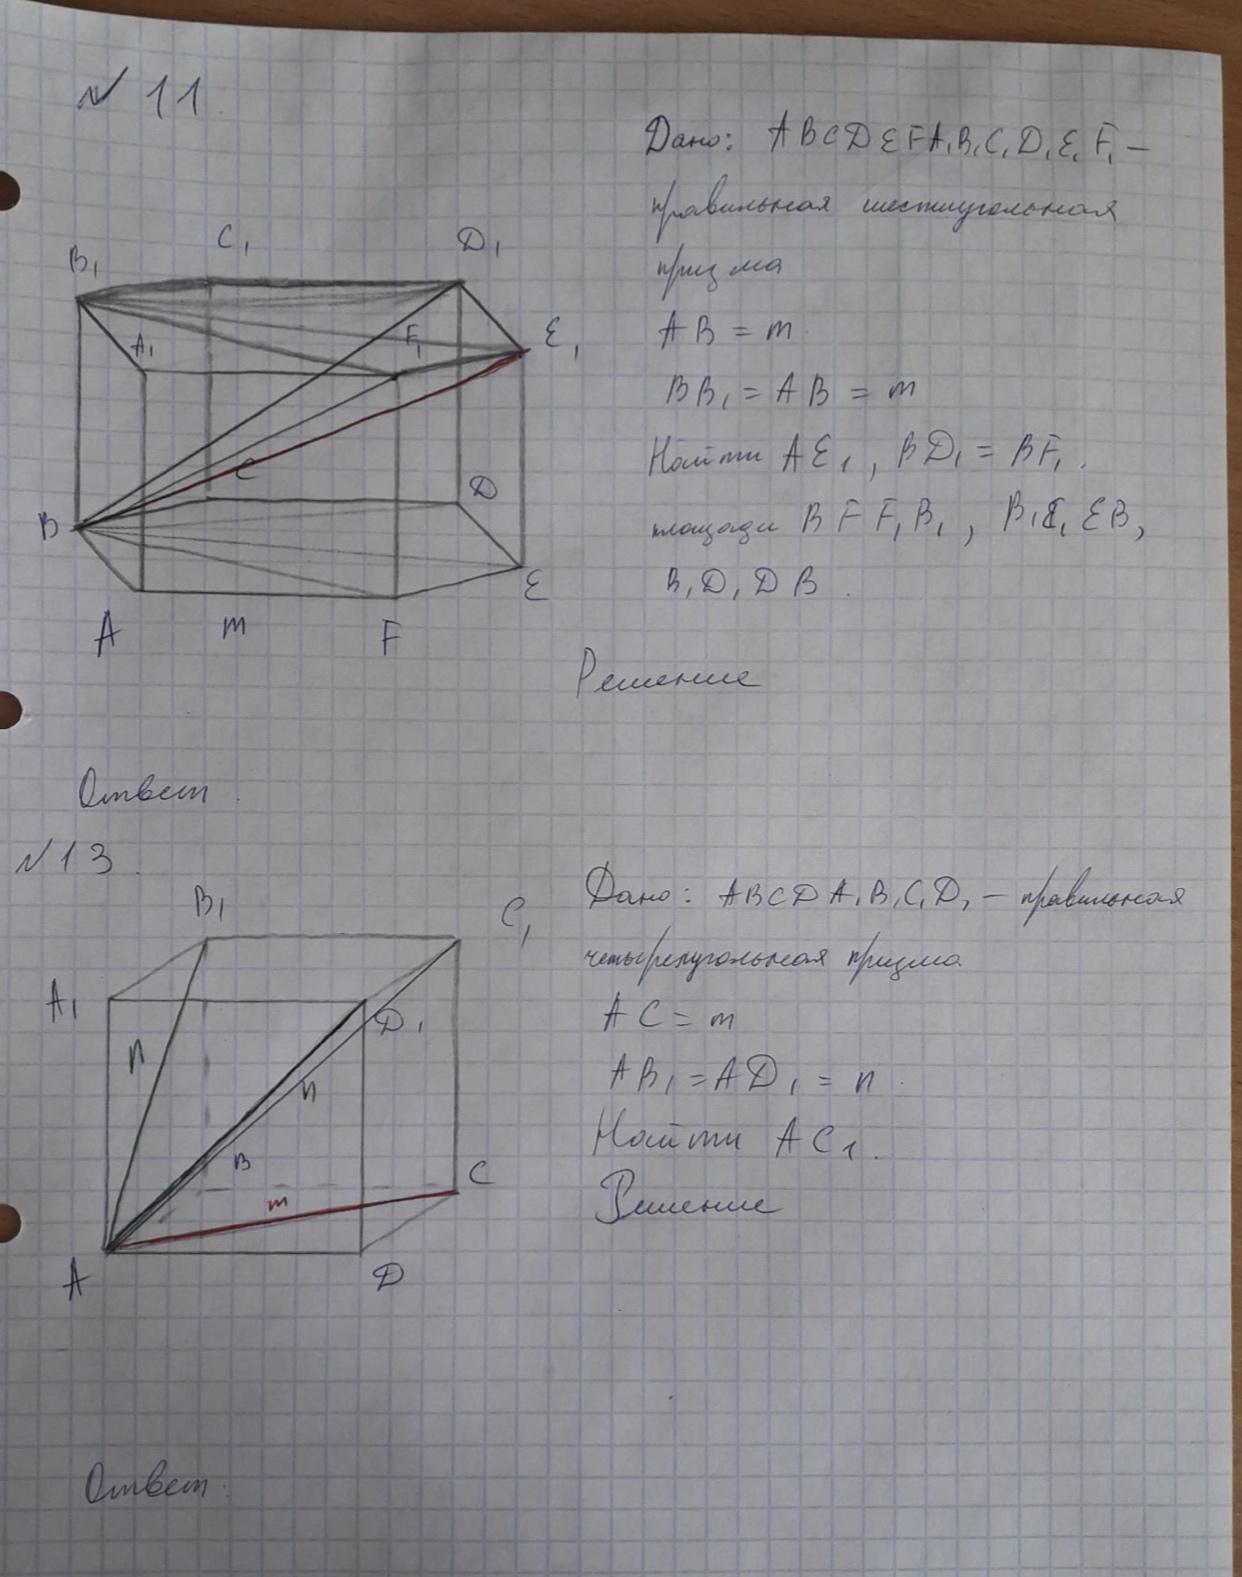 № 11
Дано: ABCDEFA₁B₁C₁D₁E₁F₁ –
правильная шестиугольная
призма
AB = m.
BB₁ = AB = m
Найти AE₁, BD₁ = BF₁.
площади BFF₁B₁, B₁E₁EB,
B₁D₁DB.
B₁
C₁
D₁
A₁
F₁
E₁
C
D
B
E
A
m
F
Решение
Ответ.
№13.
Дано: ABCDA₁B₁C₁D₁ – правильная
четырёхугольная призма
AC = m
AB₁ = AD₁ = n.
Найти AC₁.
Решение
B₁
C₁
A₁
D₁
n
n
B
C
m
A
D
Ответ: